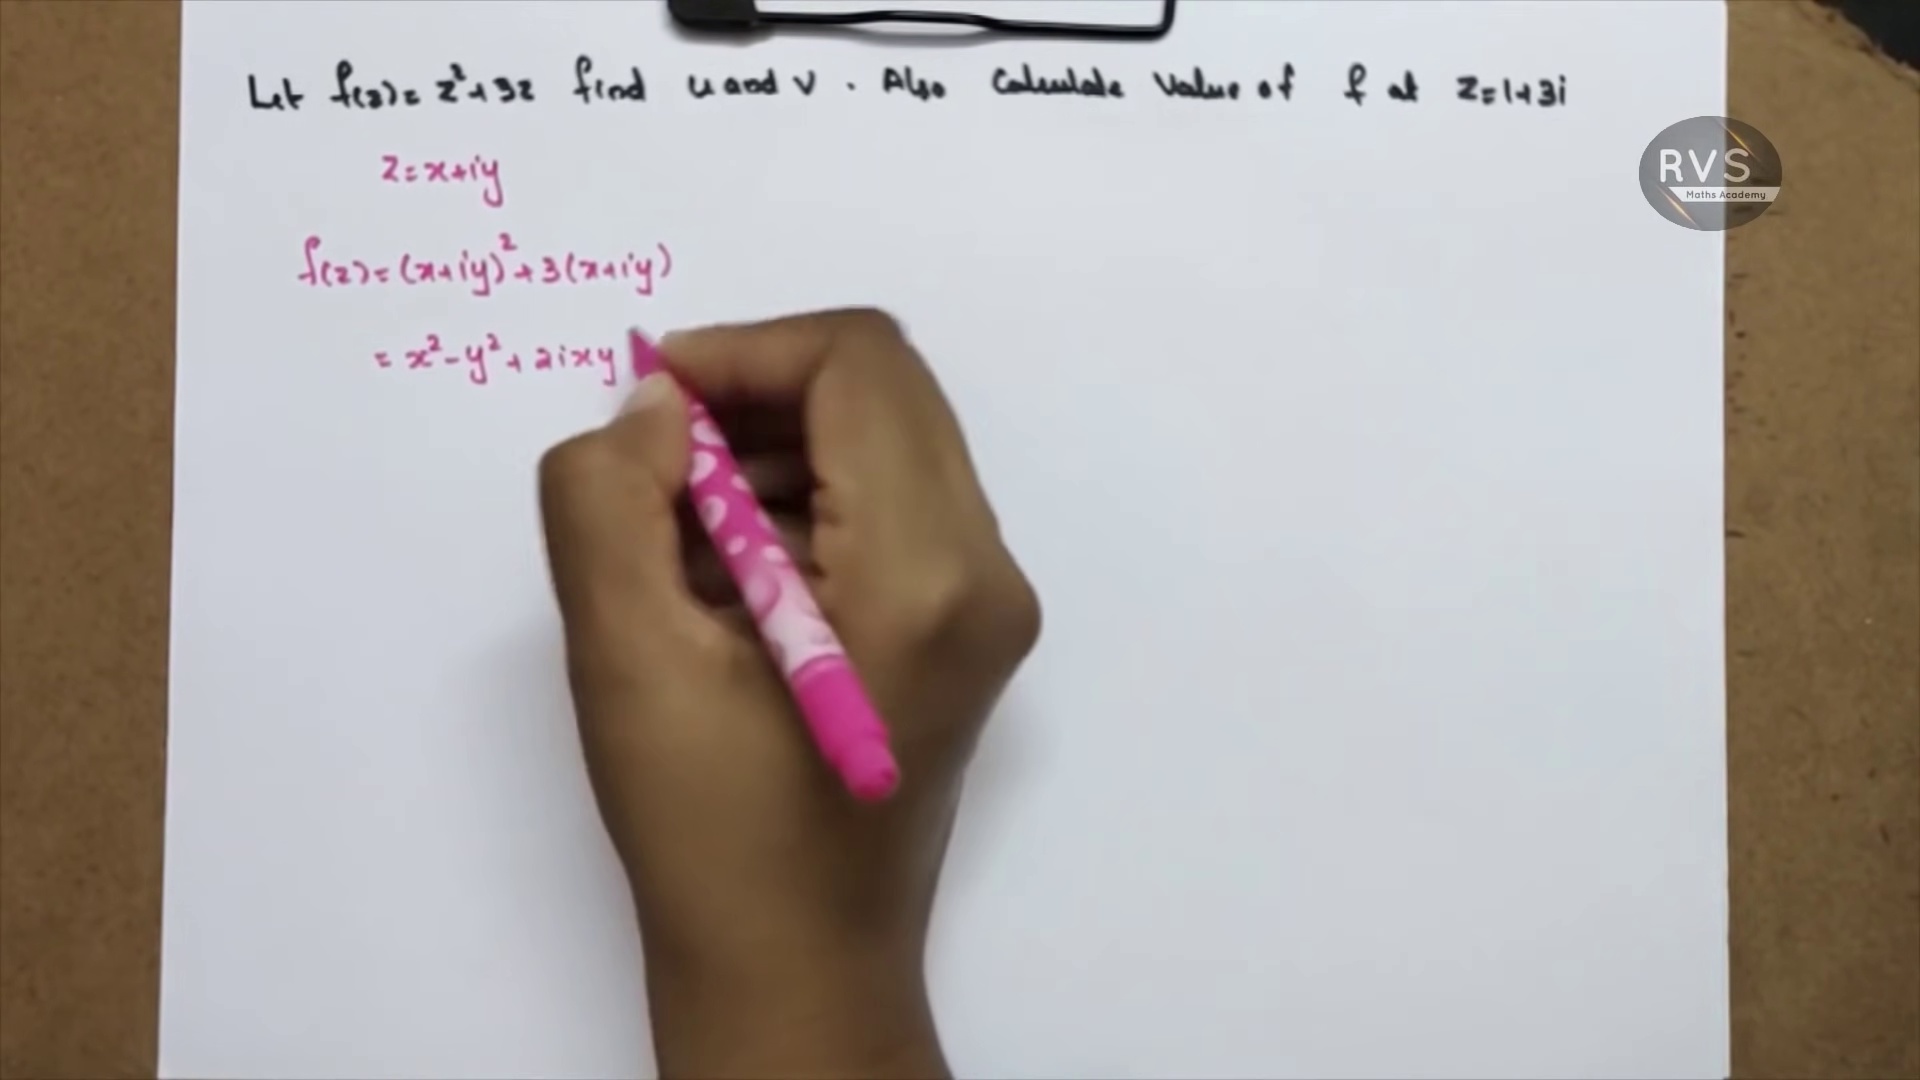 Let f(z) = z² + 3z find u and v . Also Calculate Value of f at z = 1+3i
RVS
Maths Academy
z = x+iy
f(z) = (x+iy)² + 3(x+iy)
= x² - y² + 2ixy